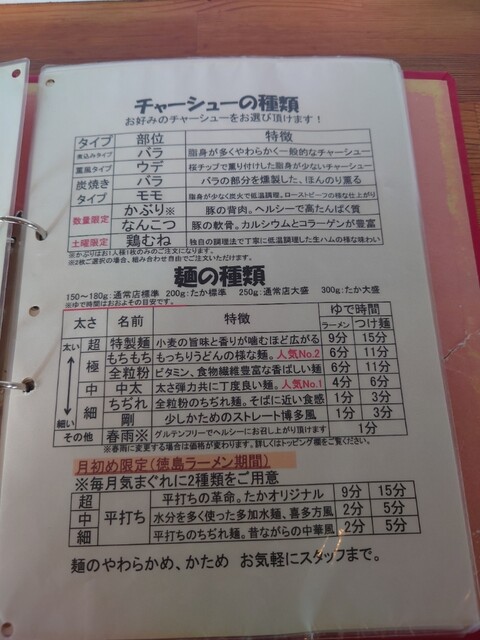 チャーシューの種類
お好みのチャーシューをお選び頂けます！
タイプ 部位 特徴
煮込みタイプ バラ 脂身が多くやわらかく一般的なチャーシュー
薫風タイプ ウデ 桜チップで薫り付けした脂身が少ないチャーシュー
炭焼きタイプ バラ バラの部分を燻製した、ほんのり薫る
モモ 脂身が少なく炭火で低温調理、ローストビーフの様な仕上がり
数量限定 かぶり※ 豚の背肉。ヘルシーで高たんぱく質
なんこつ 豚の軟骨。カルシウムとコラーゲンが豊富
土曜限定 鶏むね 独自の調理法で丁寧に低温調理した生ハムの様な味わい
※かぶりはお1人様1枚のみのご注文になります。
※2枚ご選択の場合、組み合わせ自由でご注文いただけます。
麺の種類
150～180g：通常店標準 200g：たか標準 250g：通常店大盛 300g：たか大盛
※ゆで時間はおおよその目安です。
太さ 名前 特徴 ゆで時間
ラーメン つけ麺
太い 超 特製麺 小麦の旨味と香りが噛むほど広がる 9分 15分
極 もちもち もっちりうどんの様な麺。人気No.2 6分 11分
全粒粉 ビタミン、食物繊維豊富な香ばしい麺 6分 11分
中 中太 太さ弾力共に丁度良い麺。人気No.1 4分 6分
細 ちぢれ 全粒粉のちぢれ麺。そばに近い食感 1分 3分
細い 剛 少しかためのストレート博多風 1分 3分
その他 春雨※ グルテンフリーでヘルシーにお召し上がり頂けます 1分
※春雨に変更する場合は価格が変わります。詳しくはトッピング欄をご覧ください。
月初め限定（徳島ラーメン期間）
※毎月気まぐれに2種類をご用意
超 平打ち 平打ちの革命。たかオリジナル 9分 15分
中 水分を多く使った多加水麺、喜多方風 2分 5分
細 平打ちのちぢれ麺。昔ながらの中華風 2分 5分
麺のやわらかめ、かため お気軽にスタッフまで。